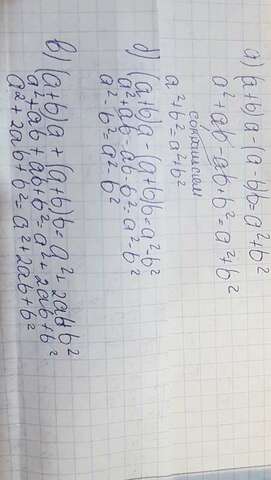 а) (a+b)a-(a-b)b=a²+b²
a²+ab-ab+b²=a²+b²
сокращаем
a²+b²=a²+b²
б) (a+b)a-(a+b)b=a²-b²
a²+ab-ab-b²=a²-b²
a²-b²=a²-b²
в) (a+b)a+(a+b)b=a²+2ab+b²
a²+ab+ab+b²=a²+2ab+b²
a²+2ab+b²=a²+2ab+b²